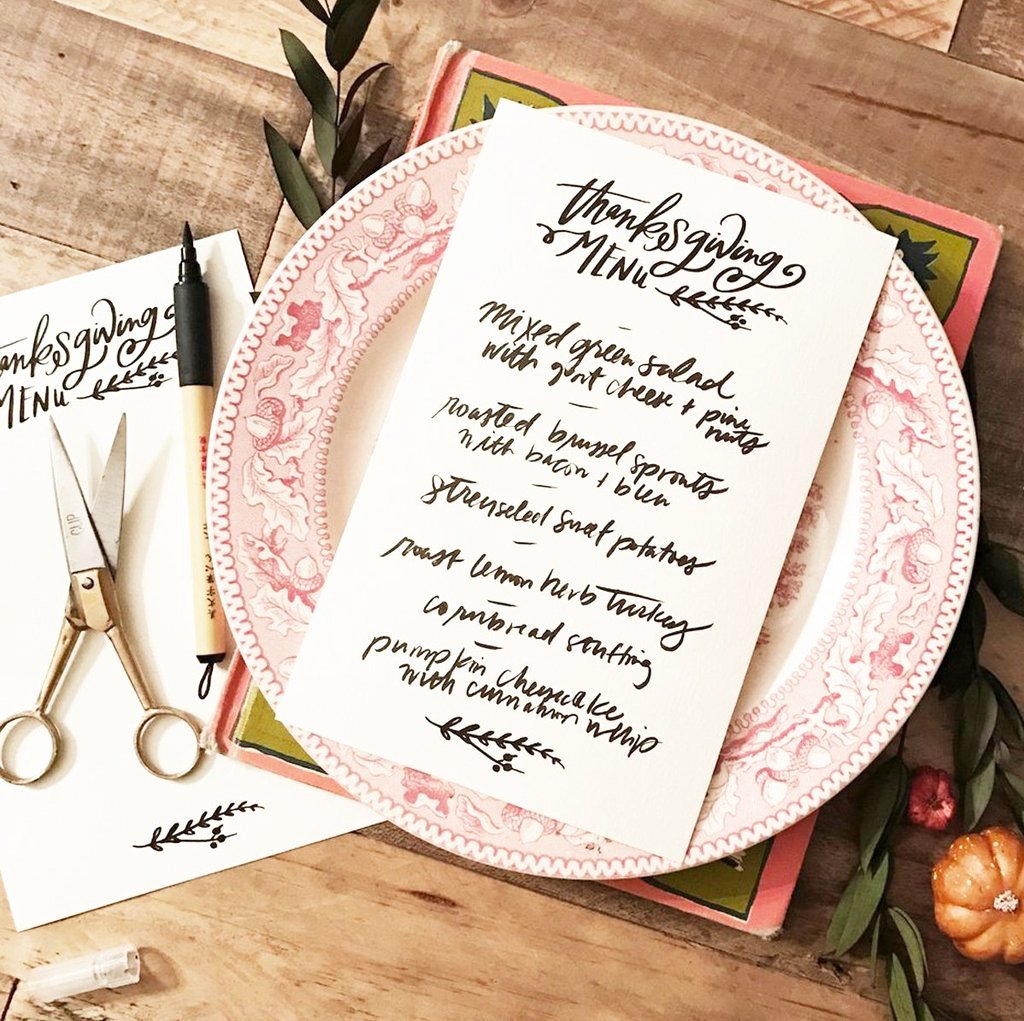 thanksgiving
MENU
mixed green salad
with goat cheese + pine
nuts
roasted brussel sprouts
with bacon + bleu
streuseled sweet potatoes
roast lemon herb turkey
cornbread stuffing
pumpkin cheesecake
with cinnamon whip
thanksgiving
MENU
CLIP